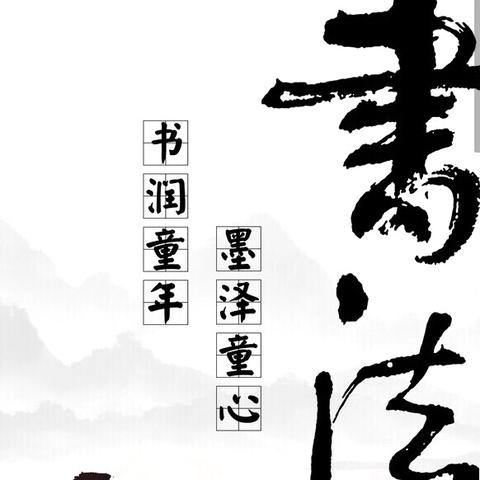 書法
墨泽童心
书润童年